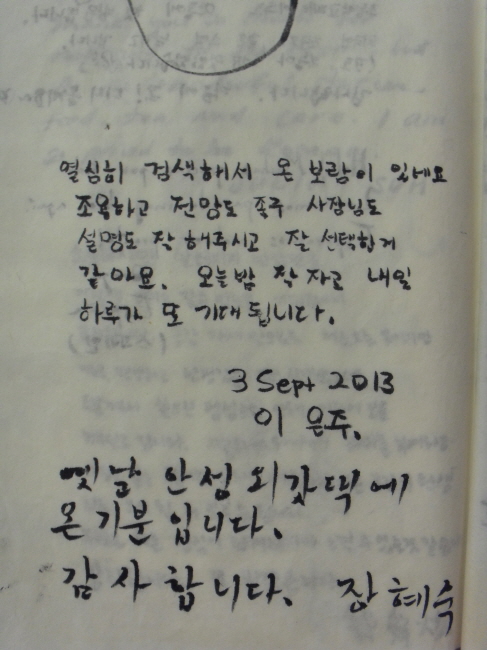 열심히 검색해서 온 보람이 있네요
조용하고 전망도 좋구 사장님도
설명도 잘 해주시고 잘 선택한거
같아요. 오늘밤 잘 자고 내일
하루가 또 기대 됩니다.
3 Sept 2013
이 은주.
옛날 안성 외갓댁에
온 기분 입니다.
감사합니다. 장혜숙